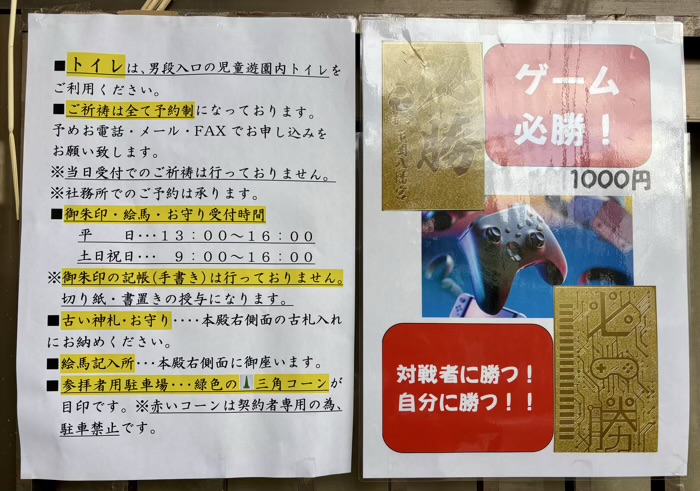 ■トイレは、男段入口の児童遊園内トイレを
ご利用ください。
■ご祈祷は全て予約制になっております。
予めお電話・メール・FAXでお申し込みを
お願い致します。
※当日受付でのご祈祷は行っておりません。
※社務所でのご予約は承ります。
■御朱印・絵馬・お守り受付時間
平　　日･･･１３：００～１６：００
土日祝日･･･　９：００～１６：００
※御朱印の記帳(手書き)は行っておりません。
切り紙・書置きの授与になります。
■古い神札・お守り･････本殿右側面の古札入れ
にお納めください。
■絵馬記入所･･･本殿右側面に御座います。
■参拝者用駐車場･･･緑色の三角コーンが
目印です。※赤いコーンは契約者専用の為、
駐車禁止です。
必勝
ゲーム
必勝！
1000円
対戦者に勝つ！
自分に勝つ！！
必勝